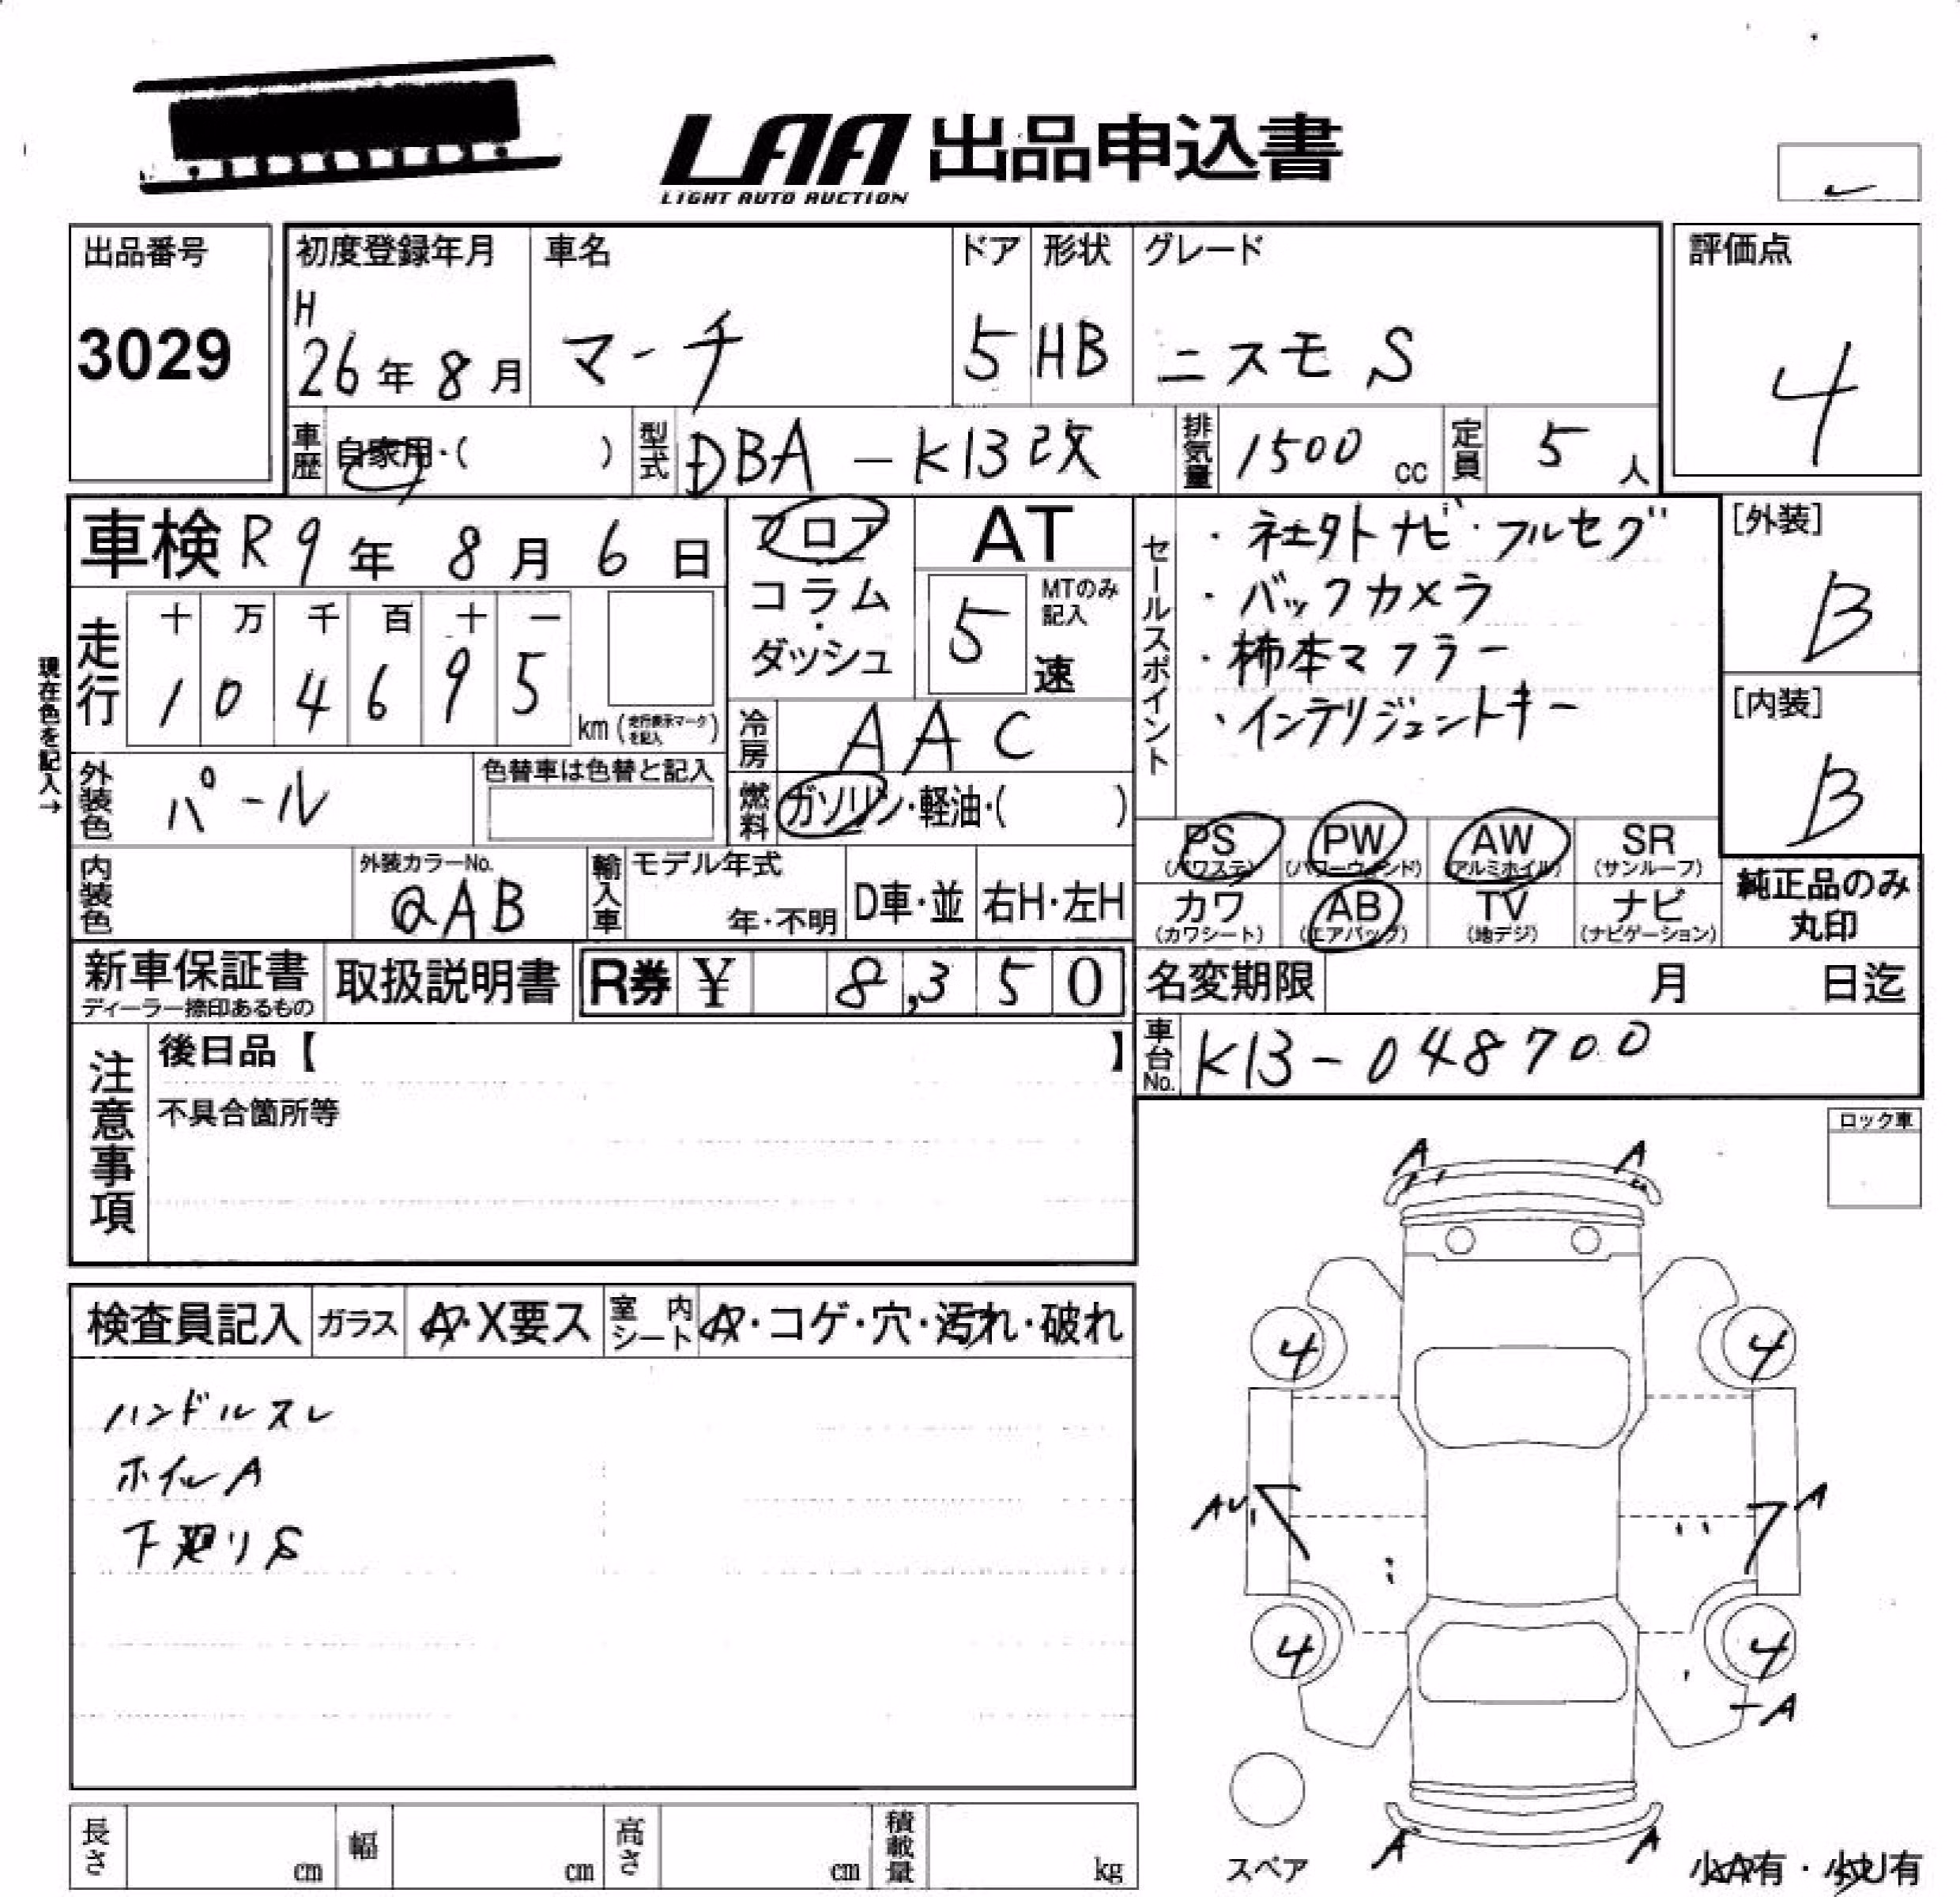 LAA 出品申込書
LIGHT AUTO AUCTION
出品番号
3029
初度登録年月
H
26年 8月
車名
マーチ
ドア
5
形状
HB
グレード
ニスモ S
評価点
4
車歴
自家用・( )
型式
DBA-K13改
排気量
1500 cc
定員
5 人
車検 R 9年 8月 6日
走行
十 万 千 百 十 一
1 0 4 6 9 5
km (走行表示マークを記入)
現在色を記入→
フロア
コラム
・
ダッシュ
AT
5
MTのみ
記入
速
冷房
AAC
燃料
ガソリン・軽油・( )
セールスポイント
・社外ナビ・フルセグ
・バックカメラ
・柿本マフラー
・インテリジェントキー
[外装]
B
[内装]
B
外装色
パール
色替車は色替と記入
PS
(パワステ)
PW
(パワーウィンド)
AW
(アルミホイル)
SR
(サンルーフ)
カワ
(カワシート)
AB
(エアバッグ)
TV
(地デジ)
ナビ
(ナビゲーション)
純正品のみ
丸印
内装色
外装カラーNo.
QAB
輸入車
モデル年式
年・不明
D車・並
右H・左H
新車保証書
ディーラー捺印あるもの
取扱説明書
R券 ¥ 8,350
名変期限 月 日迄
車台No.
K13-048700
注意事項
後日品【 】
不具合箇所等
ロック車
検査員記入
ガラス
A・X要ス
室内
シート
A・コゲ・穴・汚れ・破れ
ハンドルスレ
ホイルA
下廻りS
A A
4 4
AU A
4 4
A
A A
スペア
小A有・小U有
長さ cm
幅 cm
高さ cm
積載量 kg